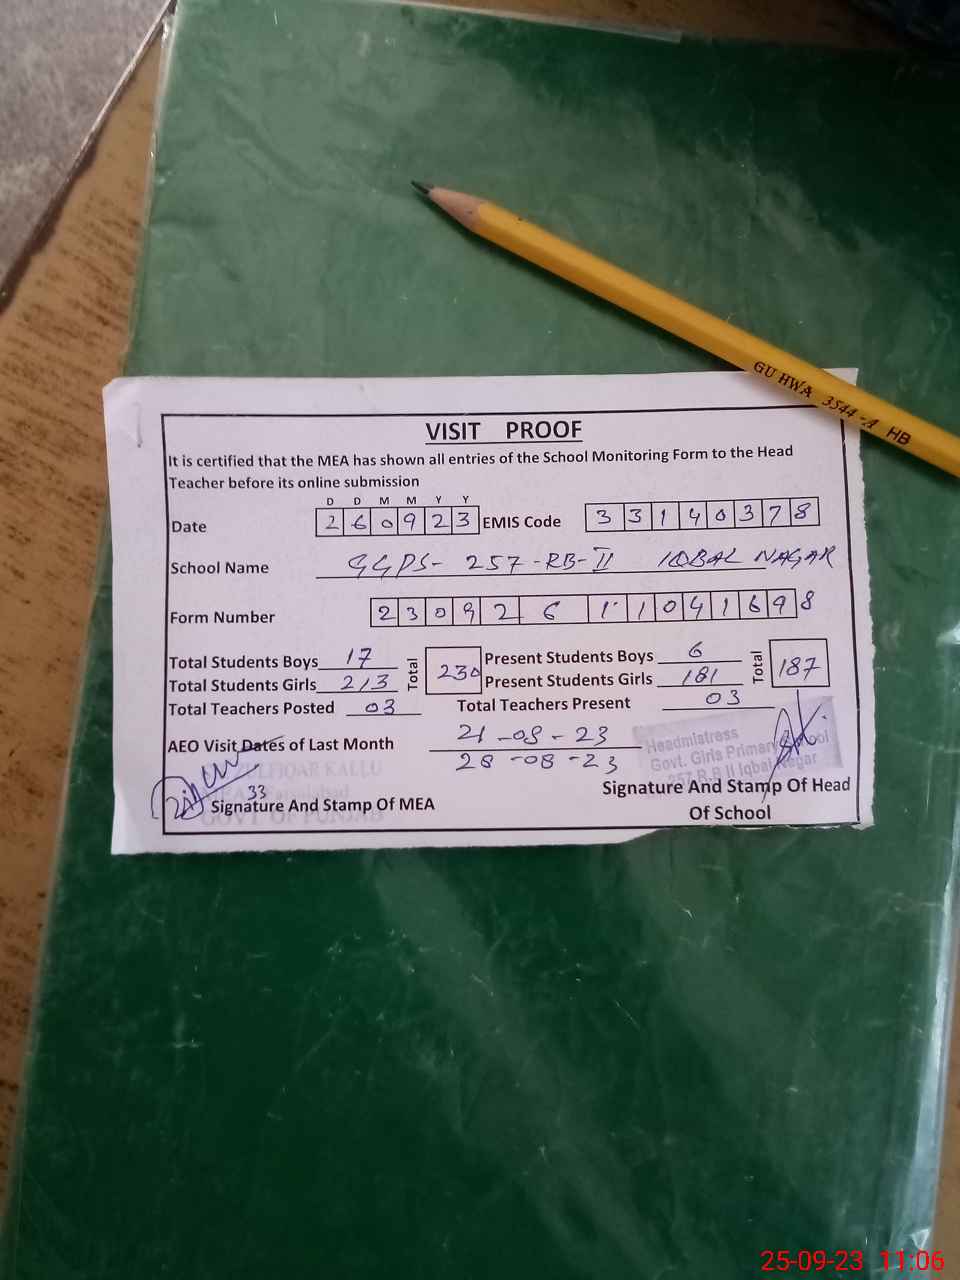 GU HWA 3544-A HB
VISIT PROOF
It is certified that the MEA has shown all entries of the School Monitoring Form to the Head
Teacher before its online submission
D D M M Y Y
Date 2 6 0 9 2 3 EMIS Code 3 3 1 4 0 3 7 8
School Name GGPS- 257-RB-II IQBAL NAGAR
Form Number 2 3 0 9 2 6 1 1 0 4 1 6 9 8
Total Students Boys 17 Total 230 Present Students Boys 6 Total 187
Total Students Girls 213 Present Students Girls 181
Total Teachers Posted 03 Total Teachers Present 03
AEO Visit Dates of Last Month 21-08-23
28-08-23
Headmistress
Govt. Girls Primary School
257 R.B II Iqbal Nagar
ZULFIQAR KALLU
33
Signature And Stamp Of MEA
GOVT OF PUNJAB
Signature And Stamp Of Head
Of School
25-09-23 11:06